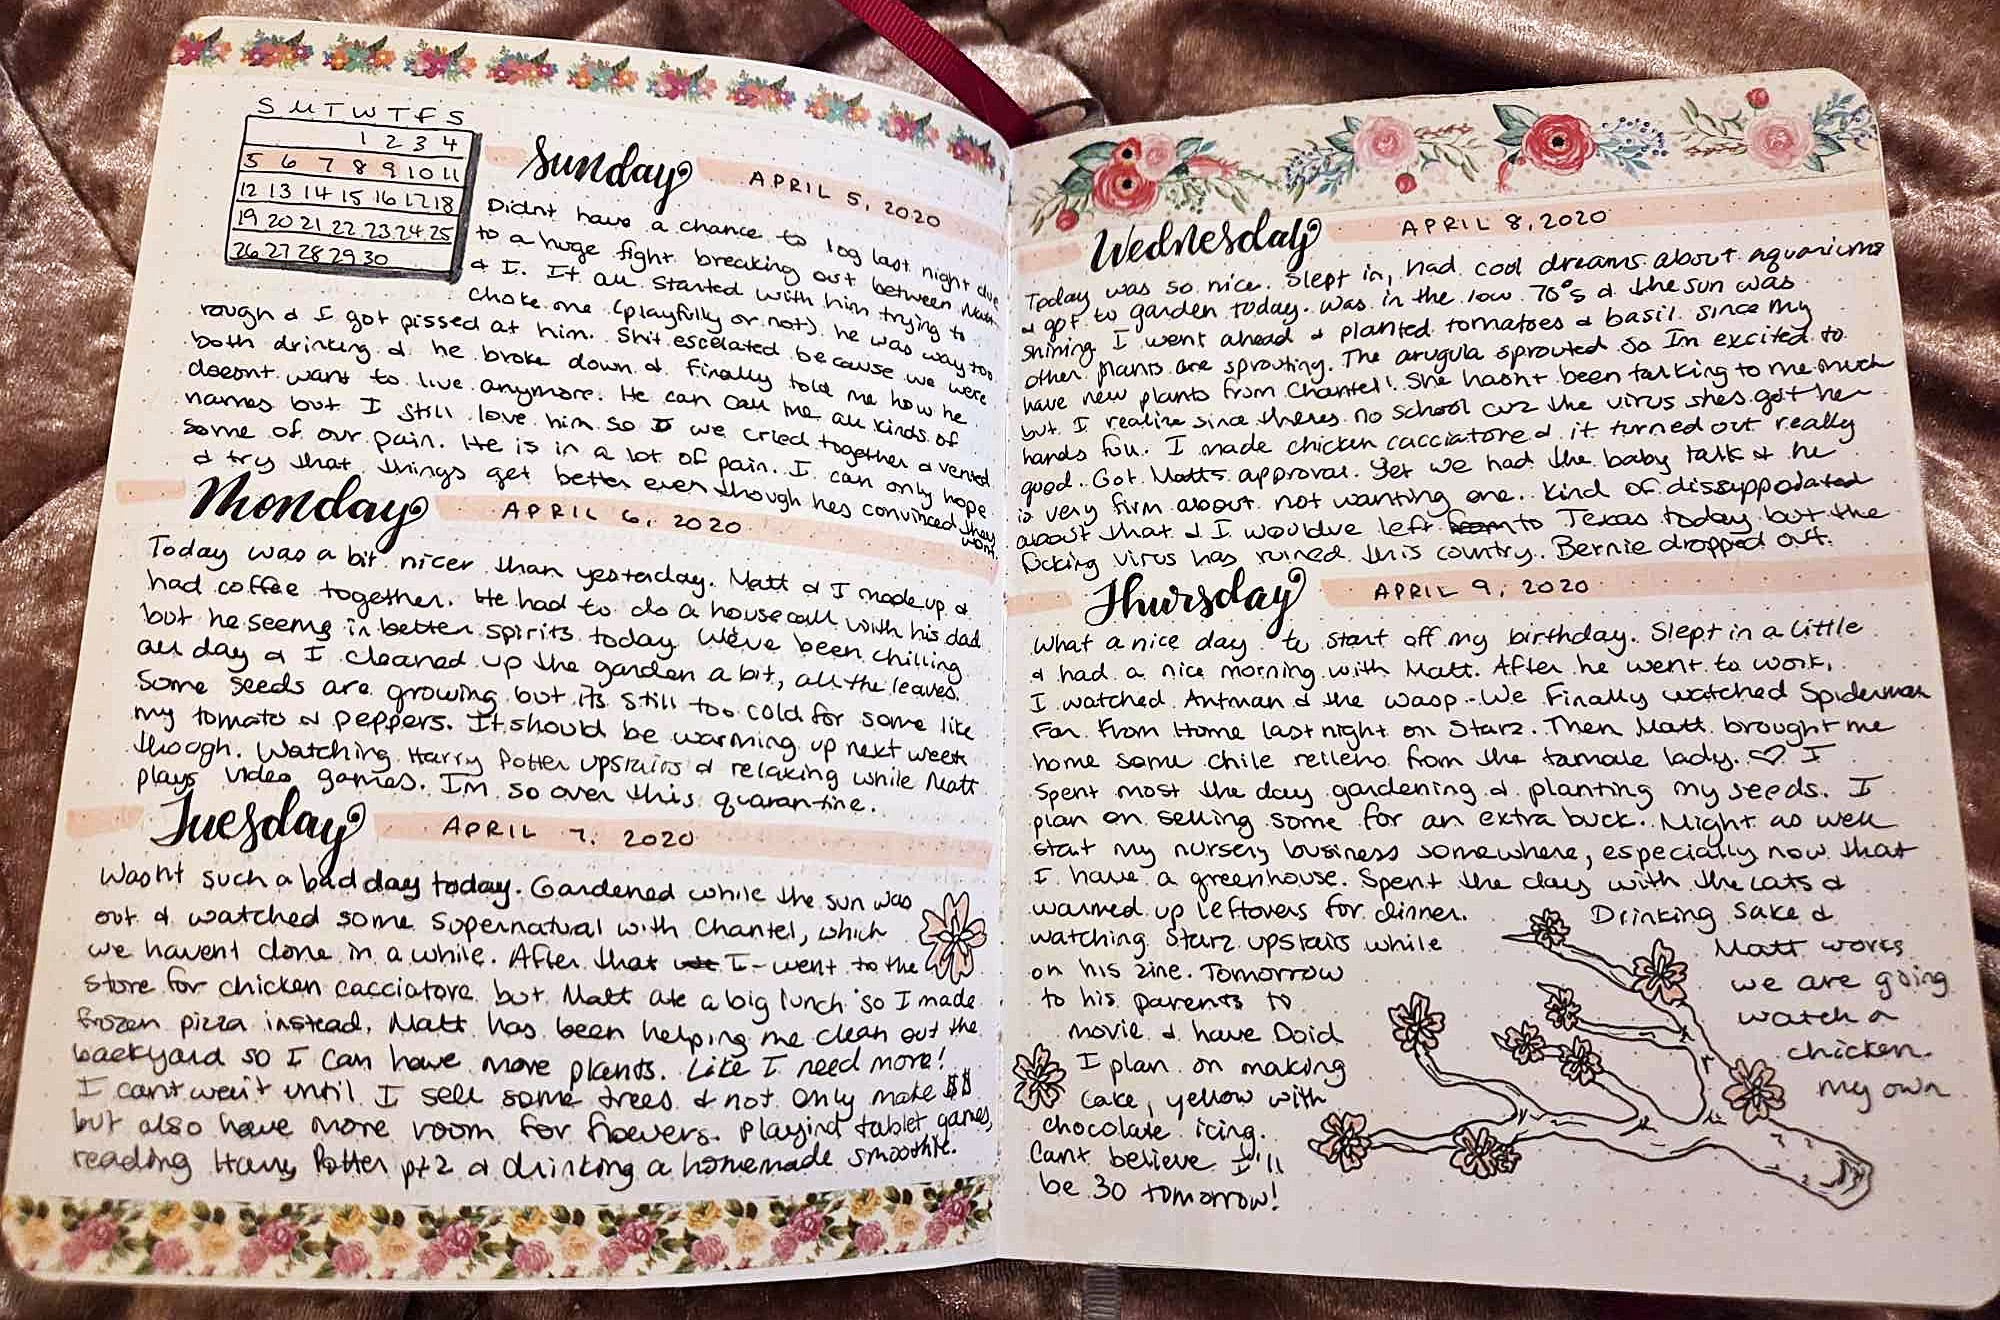 S M T W T F S
1 2 3 4
5 6 7 8 9 10 11
12 13 14 15 16 17 18
19 20 21 22 23 24 25
26 27 28 29 30
Sunday APRIL 5, 2020
Didnt have a chance to log last night due
to a huge fight breaking out between Matt
& I. It all started with him trying to
choke me (playfully or not). he was way too
rough & I got pissed at him. Shit escelated because we were
both drinking & he broke down & finally told me how he
doesnt want to live anymore. He can call me all kinds of
names but I still love him so we cried together & vented
some of our pain. He is in a lot of pain. I can only hope
& try that things get better even though hes convinced they
wont.
Monday APRIL 6, 2020
Today was a bit nicer than yesterday. Matt & I made up &
had coffee together. He had to do a housecall with his dad
but he seems in better spirits today. We've been chilling
all day & I cleaned up the garden a bit, all the leaves.
Some seeds are growing but its still too cold for some like
my tomato & peppers. It should be warming up next week
though. Watching Harry Potter upstairs & relaxing while Matt
plays video games. I'm so over this quarantine.
Tuesday APRIL 7, 2020
Wasnt such a bad day today. Gardened while the sun was
out & watched some Supernatural with Chantel, which
we havent done in a while. After that I went to the
store for chicken cacciatore but Matt ate a big lunch so I made
frozen pizza instead. Matt has been helping me clean out the
backyard so I can have more plants. Like I need more!
I cant wait until I sell some trees & not only make $$
but also have more room for flowers. Playind tablet games,
reading Harry Potter pt 2 & drinking a homemade smoothie.
Wednesday APRIL 8, 2020
Today was so nice. Slept in, had cool dreams about aquariums
& got to garden today. Was in the low 70°s & the sun was
shining. I went ahead & planted tomatoes & basil since my
other plants are sprouting. The arugula sprouted so Im excited to
have new plants from Chantel! She hasn't been talking to me much
but I realize since theres no school cuz the virus shes got her
hands full. I made chicken cacciatore & it turned out really
good. Got Matts approval. Yet we had the baby talk & he
is very firm about not wanting one. Kind of dissappointed
about that & I wouldve left to Texas today but the
fucking virus has ruined this country. Bernie dropped out.
Thursday APRIL 9, 2020
What a nice day to start off my birthday. Slept in a little
& had a nice morning with Matt. After he went to work,
I watched Antman & the Wasp. We finally watched Spiderman
Far From Home last night on Starz. Then Matt brought me
home some chile relleno from the tamale lady. ♡ I
spent most the day gardening & planting my seeds. I
plan on selling some for an extra buck. Might as well
start my nursery business somewhere, especially now that
I have a greenhouse. Spent the day with the cats &
warmed up leftovers for dinner. Drinking sake &
watching Starz upstairs while Matt works
on his zine. Tomorrow we are going
to his parents to watch a
movie & have Doid chicken.
I plan on making my own
cake, yellow with
chocolate icing.
Cant believe I'll
be 30 tomorrow!